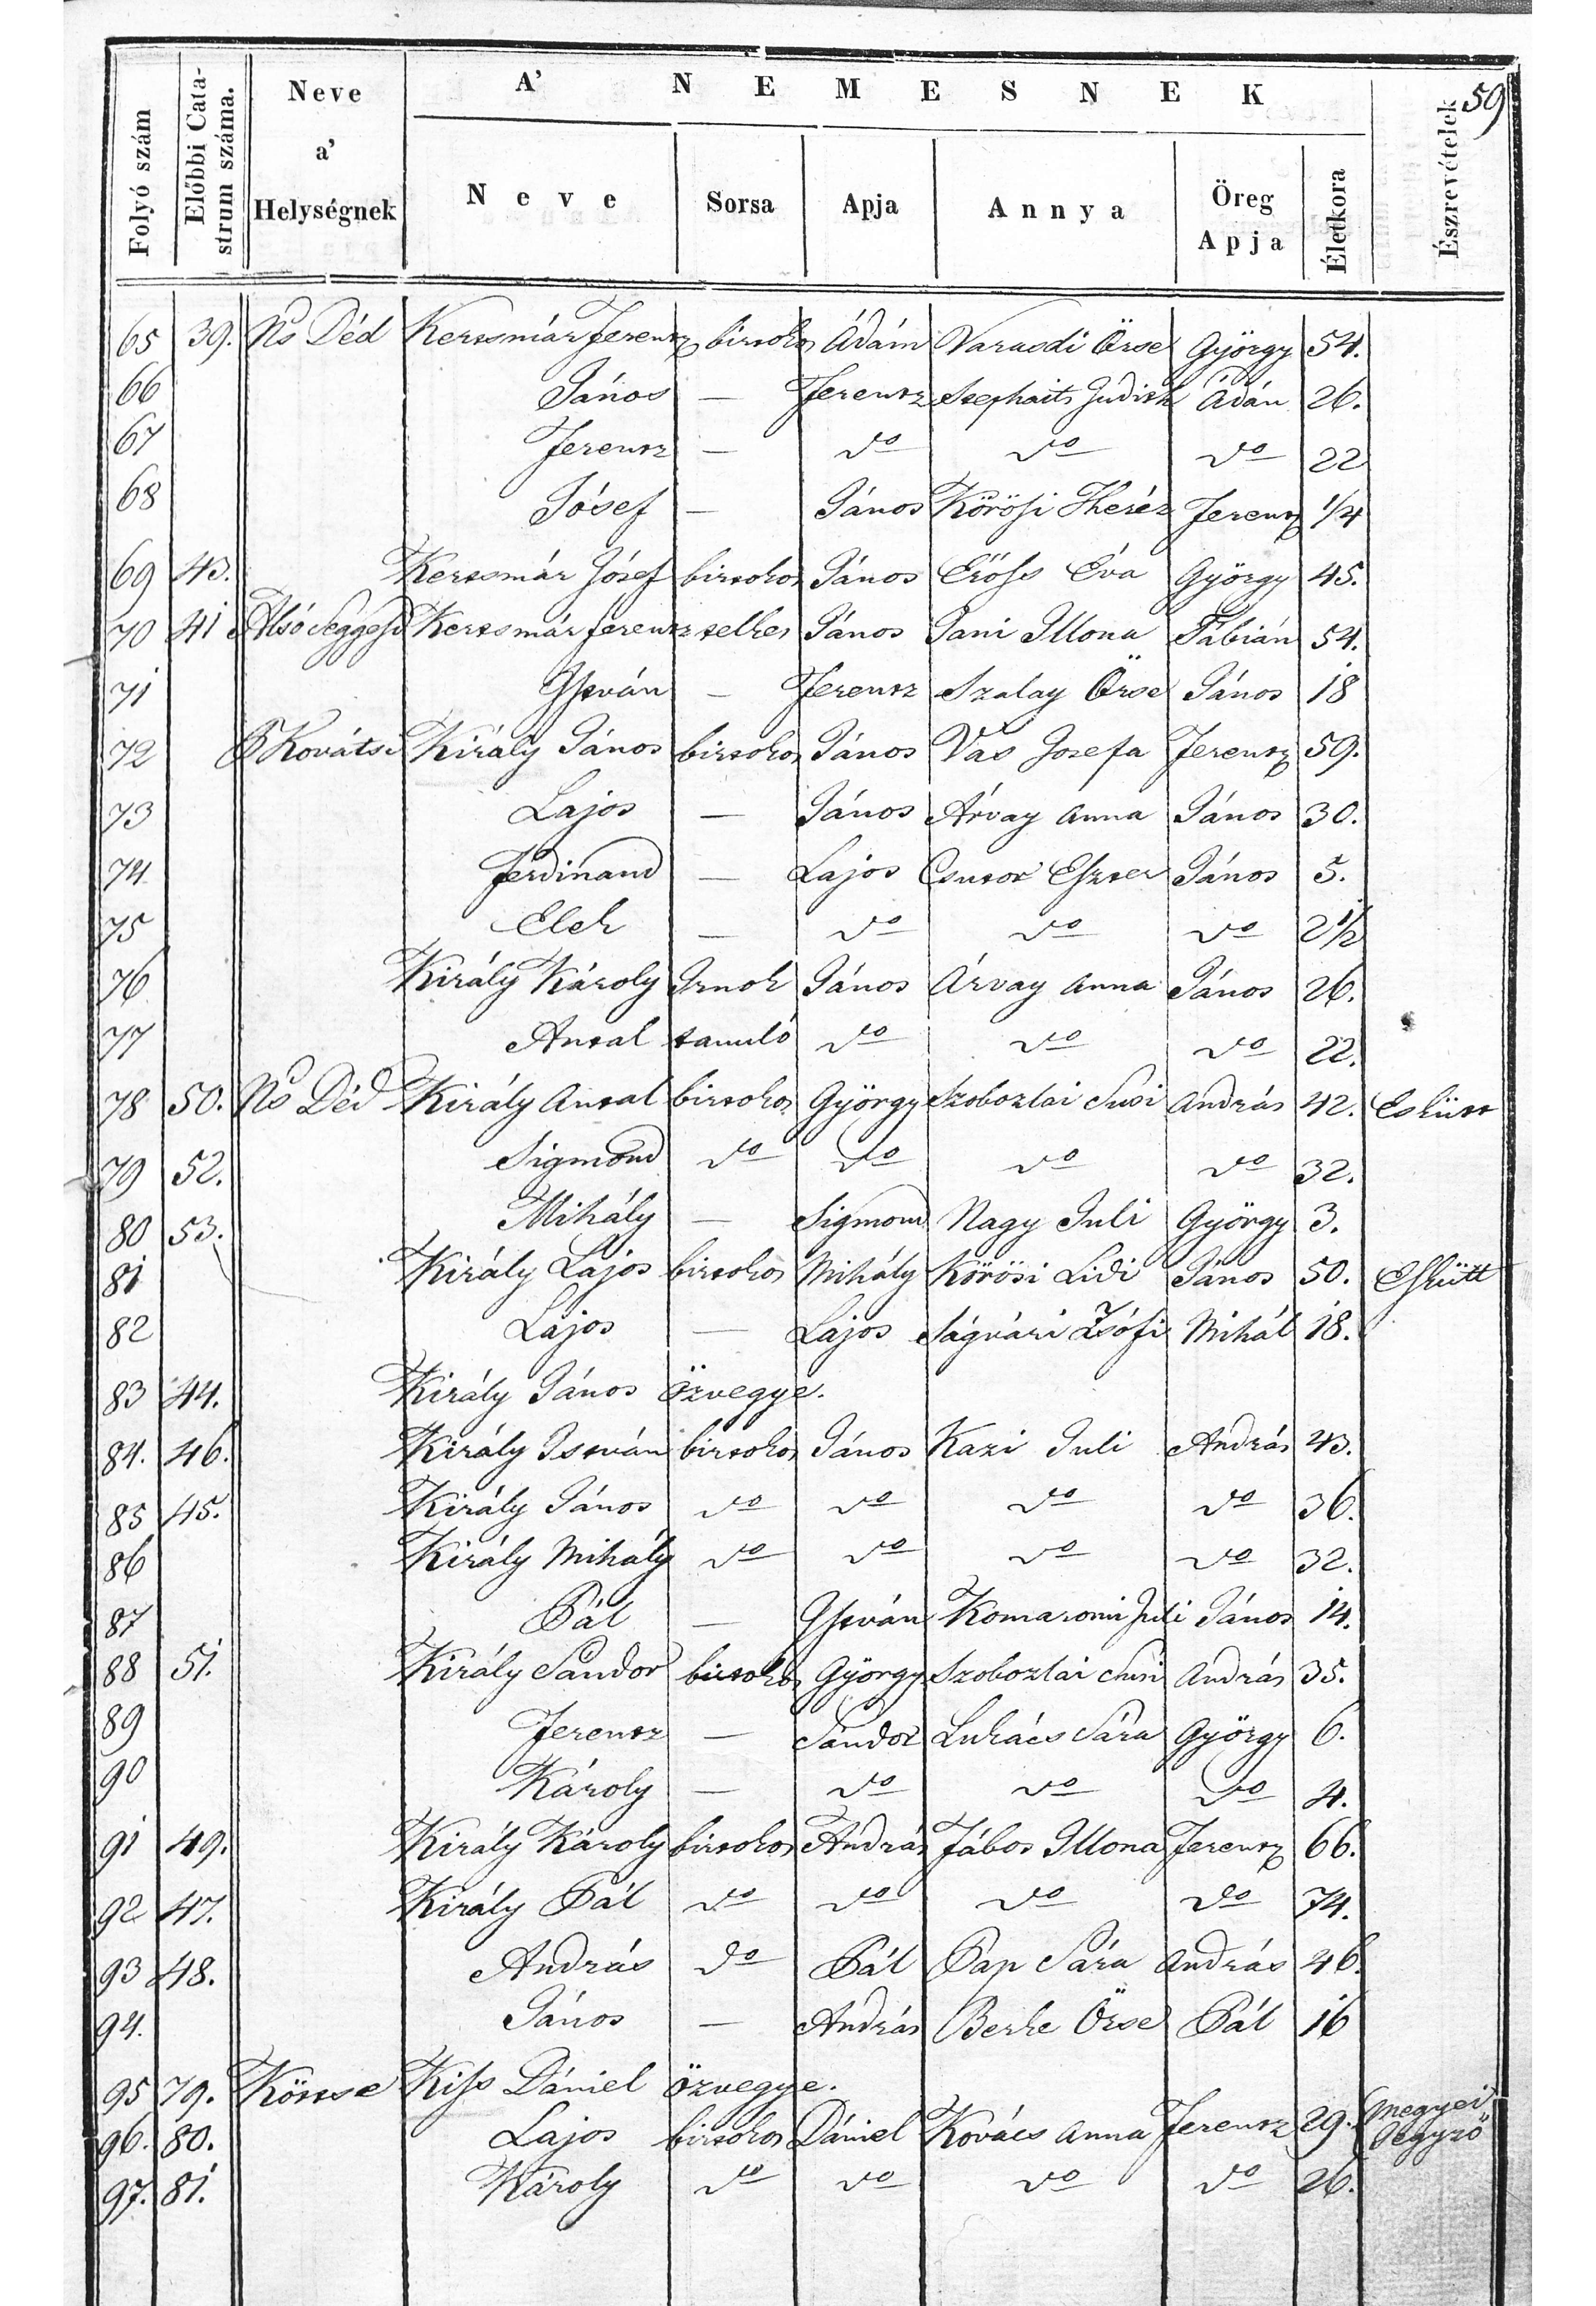 59
A' NEMESNEK
Folyó szám
Előbbi Cata-
strum száma.
Neve
a'
Helységnek
Neve
Sorsa
Apja
Annya
Öreg
Apja
Életkora
Észrevételek
65 39. Ns Déd Kertsmár Ferentz birtokos Ádám Varasdi Örse György 54.
66 János — Ferentz Stephaits Judith Ádán 26.
67 Ferentz — do do do 22
68 Jósef — János Körösi Theréz Ferentz 1/4
69 43. Kertsmár Jósef birtokos János Erőss Éva György 45.
70 41 Alsó Seggesd Kertsmár ferentz telkes János Jani Illona Fábián 54.
71 István — Ferentz Szalay Örse János 18
72 Kováts Király János birtokos János Vas Josefa Ferentz 59.
73 Lajos — János Árvay Anna János 30.
74 Ferdinand — Lajos Csutor Eszter János 5.
75 Elek — do do do 2 1/2
76 Király Károly Irnok János Árvay Anna János 26.
77 Antal tanuló do do do 22.
78 50. Ns Déd Király Antal birtokos György Szoboszlai Susi András 42. Eskütt
79 52. Sigmond do do do do 32.
80 53. Mihály — Sigmond Nagy Juli György 3.
81 Király Lajos birtokos Mihály Körösi Lidi János 50. Eskütt
82 Lajos — Lajos Ságvári Zsófi Mihál 18.
83 44. Király János özvegye.
84. 46. Király István birtokos János Kazi Juli András 43.
85 45. Király János do do do do 36.
86 Király Mihály do do do do 32.
87 Pál — István Komaromi Juli János 14.
88 51. Király Sándor birtokos György Szoboszlai Susi András 35.
89 Ferentz — Sandor Lukács Sára György 6.
90 Károly — do do do 4.
91 49. Király Károly birtokos András Fábos Illona Ferentz 66.
92 47. Király Pál do do do do 74.
93 48. András do Pál Pap Sára András 46.
94. János — András Berke Örse Pál 16
95 79. Köttse Kiss Dániel özvegye.
96. 80. Lajos birtokos Dániel Kovács Anna Ferentz 29. megyei Jegyző
97. 81. Károly do do do do 26.